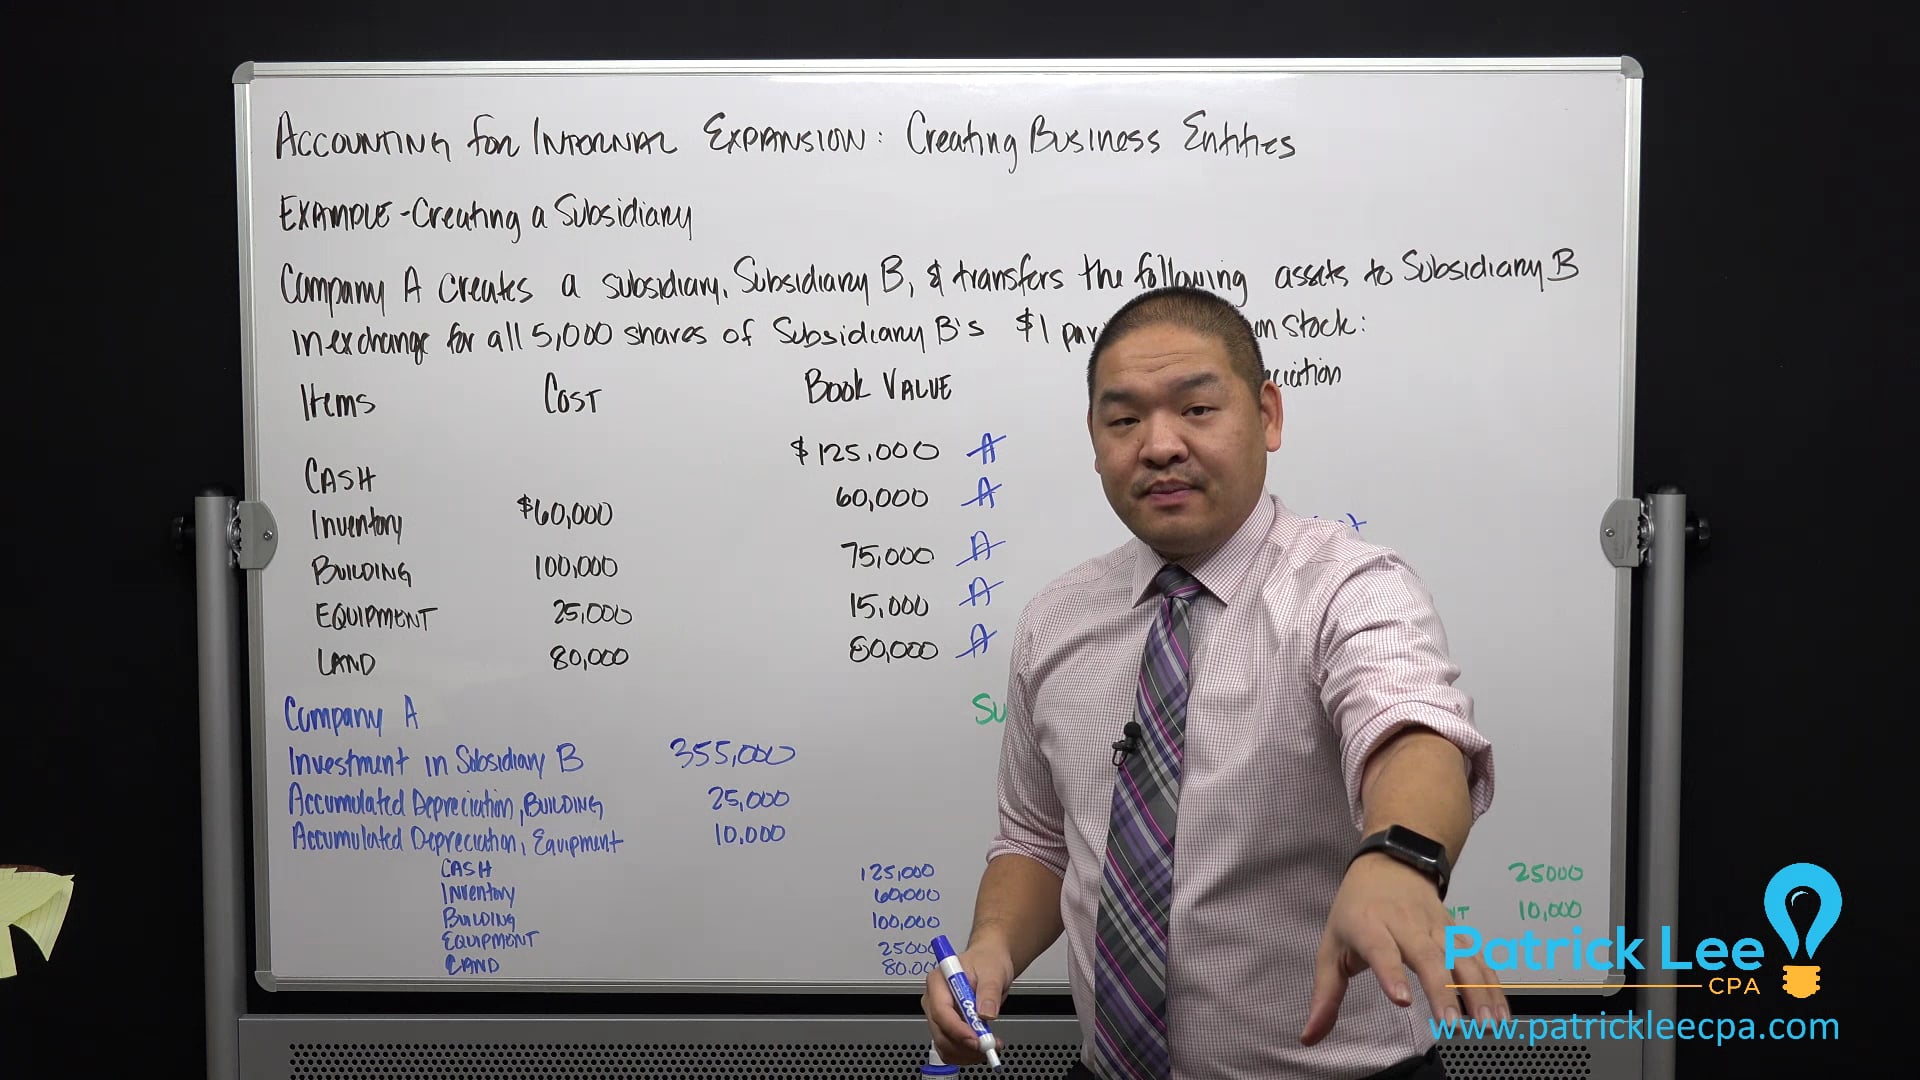 Accounting for Internal Expansion: Creating Business Entities
Example - Creating a Subsidiary
Company A creates a subsidiary, Subsidiary B, & transfers the following assets to Subsidiary B
in exchange for all 5,000 shares of Subsidiary B's $1 par on stock:
Items Cost Book Value eciation
Cash $125,000 A
Inventory $60,000 60,000 A
Building 100,000 75,000 A
Equipment 25,000 15,000 A
Land 80,000 80,000 A
Company A Su
Investment in Subsidiary B 355,000
Accumulated Depreciation, Building 25,000
Accumulated Depreciation, Equipment 10,000
Cash 125,000 25000
Inventory 60,000
Building 100,000 NT 10,000
Equipment 25000
Land 80,00
Patrick Lee
CPA
www.patrickleecpa.com